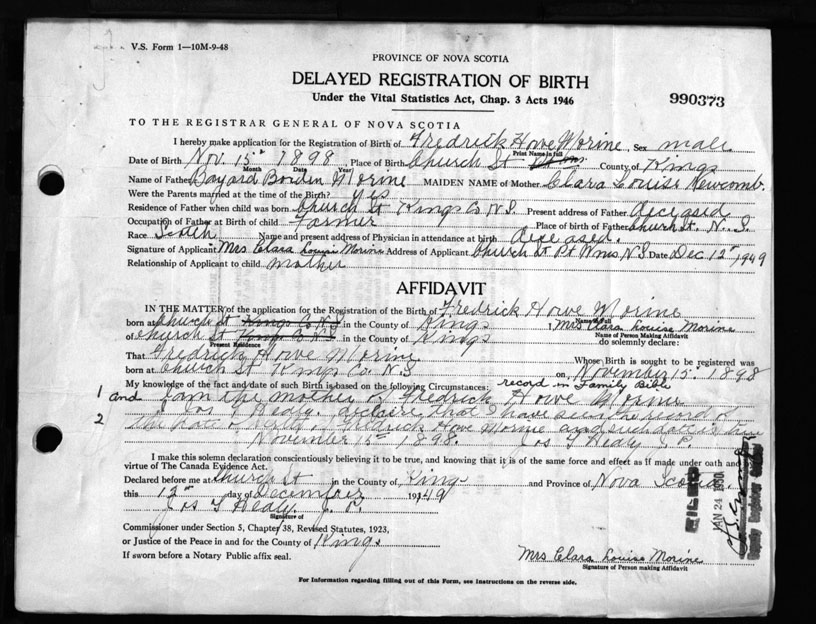 V.S. Form 1—10M-9-48
PROVINCE OF NOVA SCOTIA
DELAYED REGISTRATION OF BIRTH
Under the Vital Statistics Act, Chap. 3 Acts 1946
990373
TO THE REGISTRAR GENERAL OF NOVA SCOTIA
I hereby make application for the Registration of Birth of Fredrick Howe Morine, Sex male
Print Name in full
Date of Birth Nov. 15th 1898, Place of Birth Church St County of Kings
Month Date Year
Name of Father Bayard Borden Morine MAIDEN NAME of Mother Clara Louise Newcomb.
Were the Parents married at the time of the Birth? Yes
Residence of Father when child was born Church St Kings Co N.S. Present address of Father deceased
Occupation of Father at Birth of child Farmer Place of Birth of Father Church St. N.S.
Race Scotch Name and present address of Physician in attendance at birth deceased.
Signature of Applicant Mrs Clara Louise Morine Address of Applicant Church St Pt Wms N.S. Date Dec 12th, 1949
Relationship of Applicant to child mother
AFFIDAVIT
IN THE MATTER of the application for the Registration of the Birth of Fredrick Howe Morine
Name in Full
born at Church St Kings Co N.S in the County of Kings, Mrs Clara Louise Morine
Name of Person Making Affidavit
of Church St Kings Co N.S. in the County of Kings do solemnly declare:
Present Residence
That Fredrick Howe Morine Whose Birth is sought to be registered was
born at Church St Kings Co. N.S on November 15th 1898
My knowledge of the fact and date of such Birth is based on the following Circumstances: record in Family Bible
1 and I am the mother of Fredrick Howe Morine
2 Jos T Healy. declare that I have seen the record of
the date of birth of Fredrick Howe Morine and such date is true
November 15th 1898. Jos T Healy J.P.
I make this solemn declaration conscientiously believing it to be true, and knowing that it is of the same force and effect as if made under oath and
virtue of The Canada Evidence Act.
Declared before me at Church St in the County of Kings and Province of Nova Scotia.
this 12th day of December 1949
Jos T Healy. J. P.
Signature of
Commissioner under Section 5, Chapter 38, Revised Statutes, 1923,
or Justice of the Peace in and for the County of Kings
If sworn before a Notary Public affix seal.
Mrs Clara Louise Morine
Signature of Person making Affidavit
For Information regarding filling out of this Form, see Instructions on the reverse side.
FILED
JAN 24 1950
Deputy Registrar